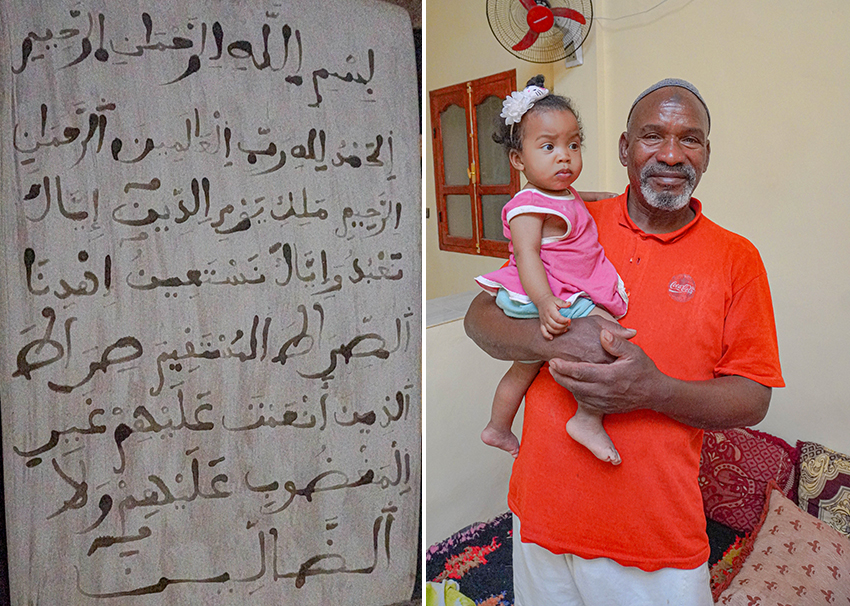 بِسْمِ اِللَّهِ اِلرَّحْمَانِ اِلرَّحِيمِ
اِلْحَمْدُ لِلهِ رَبِّ اِلْعَالَمِينَ اَلرَّحْمَانِ
اِلرَّحِيمِ مَلِكِ يَوْمِ اِلدِّينِ إِيَّاكَ
نَعْبُدُ وَإِيَّاكَ نَسْتَعِينُ اِهْدِنَا
اَلصِّرَاطَ اَلْمُسْتَقِيمَ صِرَاطَ
اَلذِينَ أَنْعَمْتَ عَلَيْهِمْ غَيْرِ
اِلْمَغْضُوبِ عَلَيْهِمْ وَلَا
اَلضَّالِّينَ
Coca-Cola